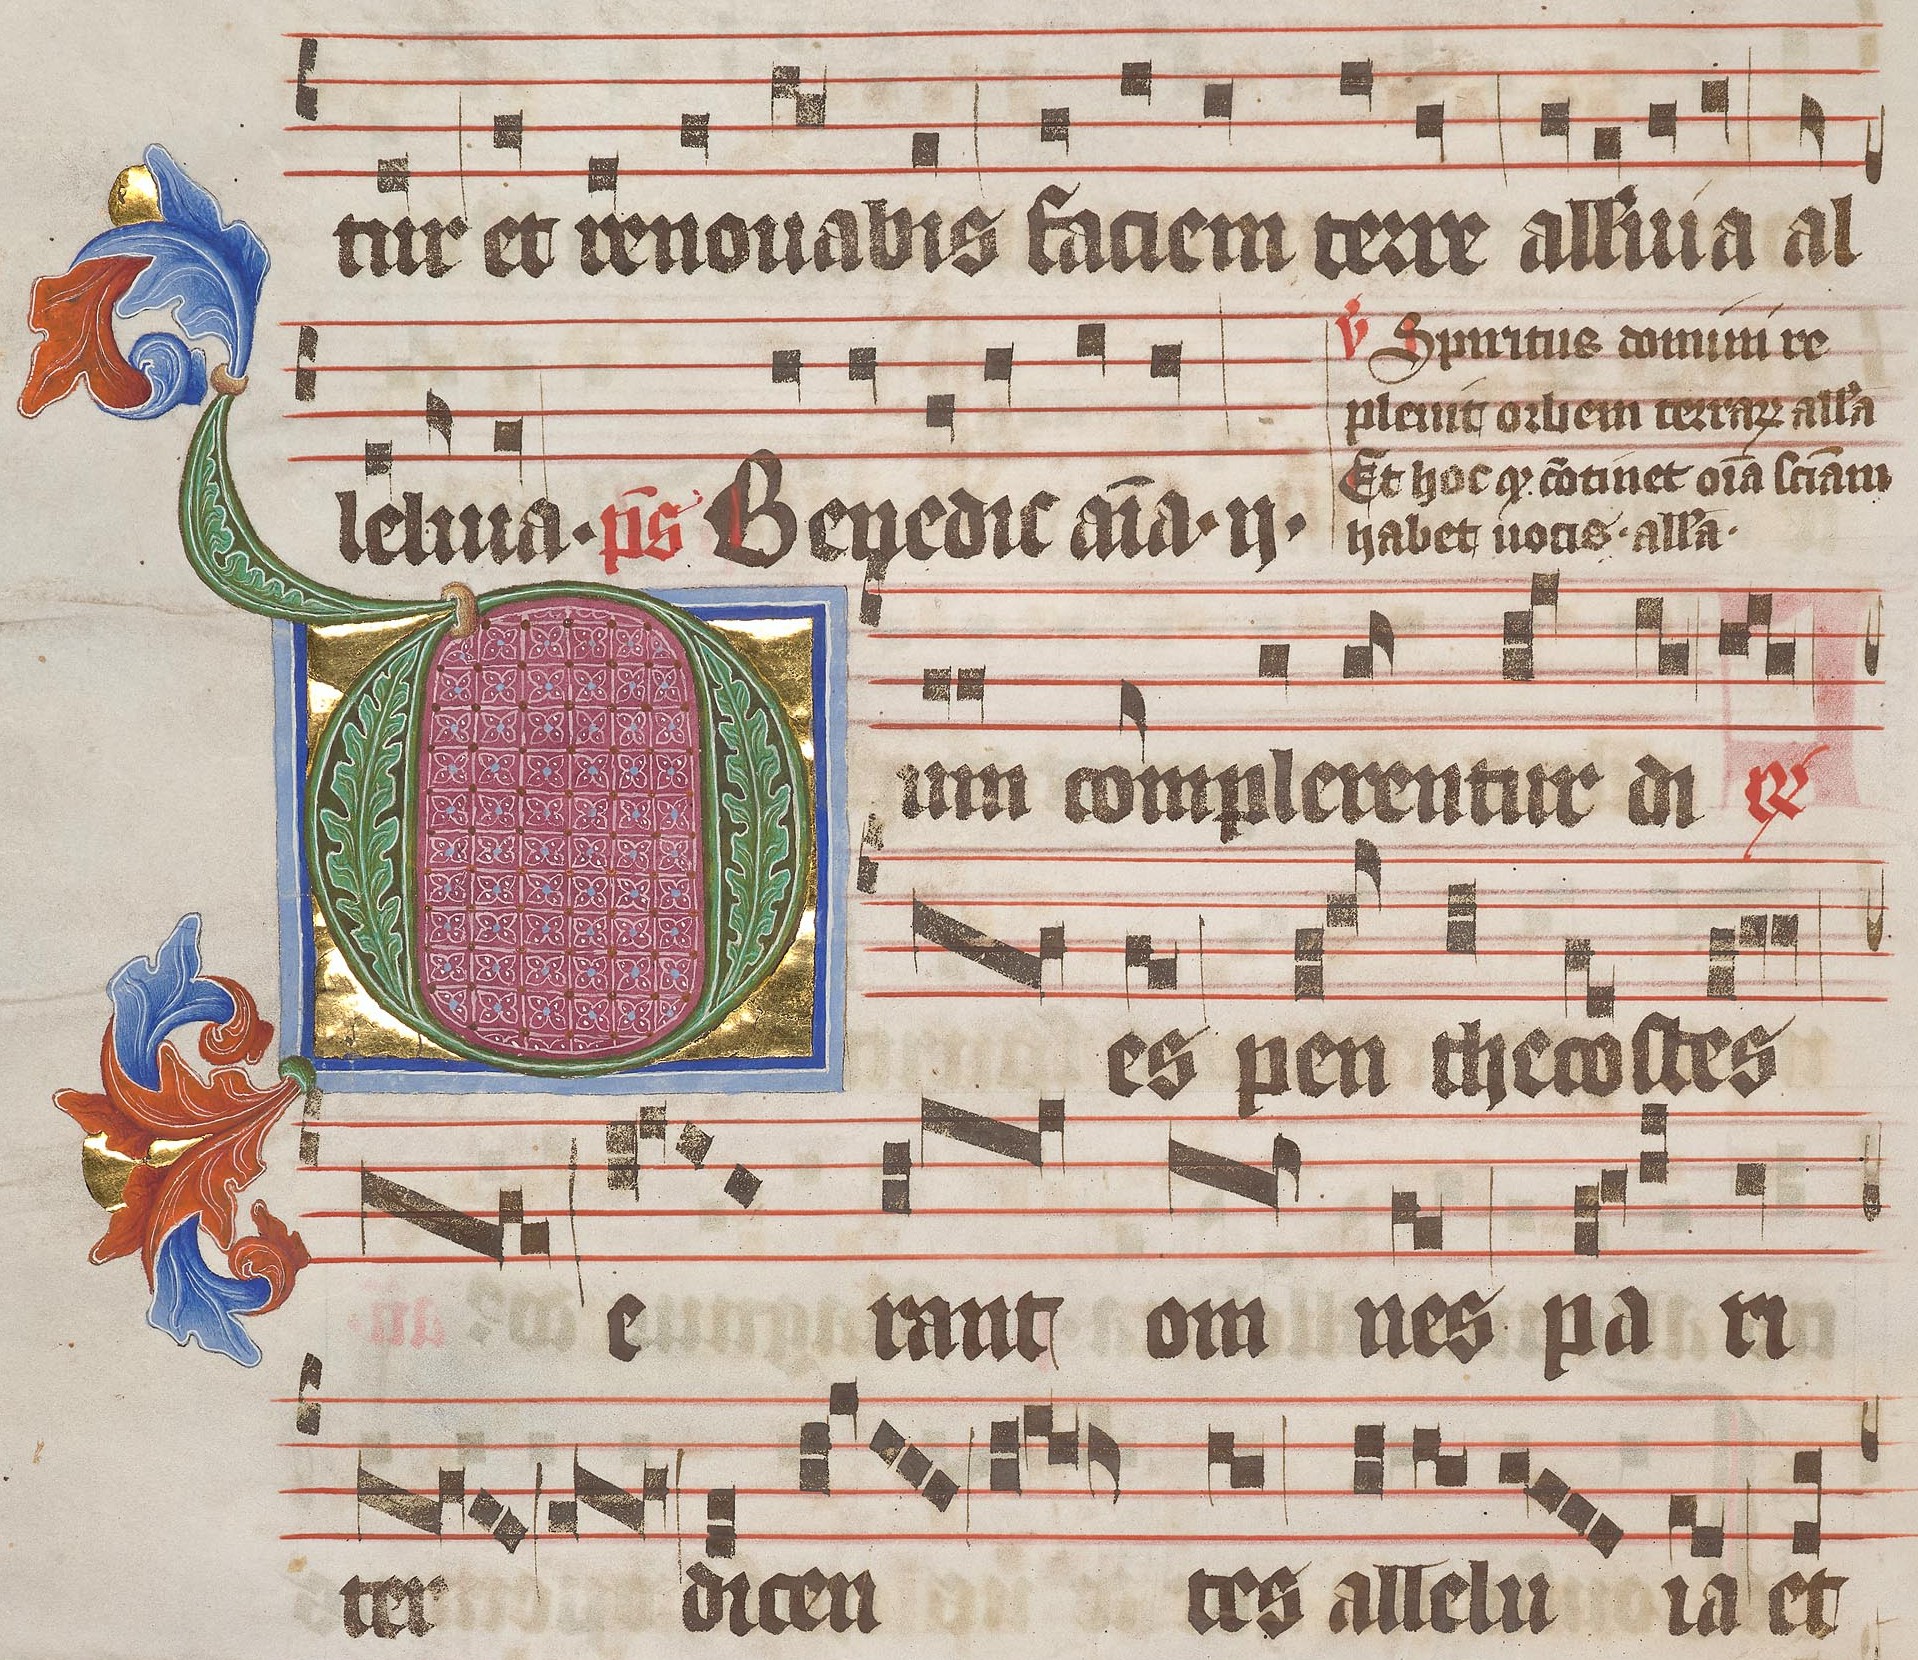 tur et renouabis faciem terre all'uia al
leluia · ps̄ Benedic aīa · ij ·
v̄ Spiritus domini re
pleuit orbem terraꝝ all'a
Et hoc ꝙ cōtinet oīa sciām
habet uocis · all'a ·
um complerentur di
es pen thecostes
e rant om nes pa ri
ter dicen tes allelu ia et